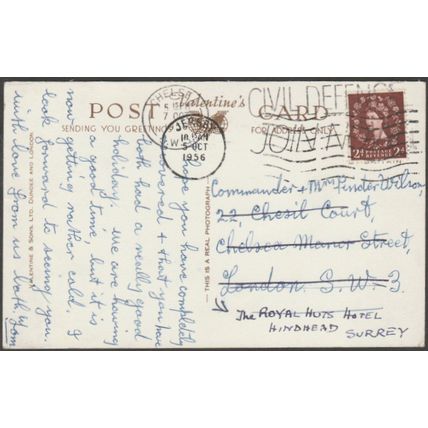 POST Valentine's CARD
SENDING YOU GREETINGS FOR ADDRESS ONLY
CHELSEA
JERSEY
5 OCT
1956
CIVIL DEFENCE
JOIN NOW
2d 2d
I hope you have completely
recovered & that you have
both had a really good
holiday. We are having
a good time, but it is
now getting rather cold. I
look forward to seeing you.
with love from us both
VALENTINE & SONS, LTD. DUNDEE AND LONDON.
THIS IS A REAL PHOTOGRAPH
Commander & Mrs Pinder Wilson,
22, Chesil Court,
Chelsea Manor Street,
London. S.W. 3.
The ROYAL HUTS HOTEL
HINDHEAD
SURREY